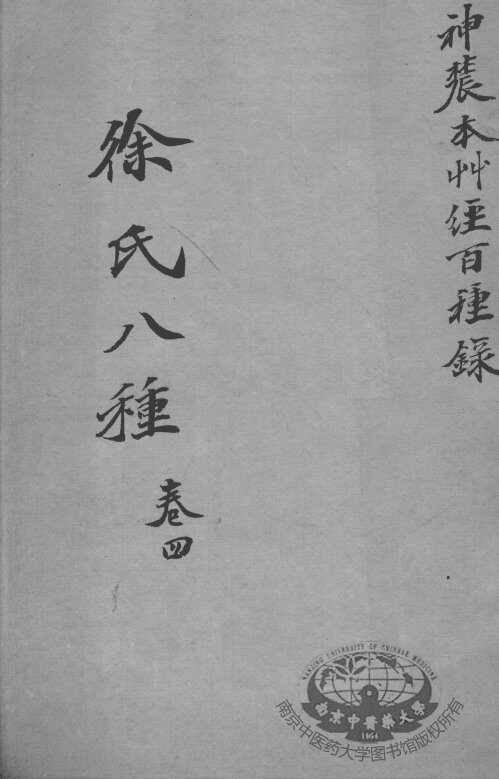 神農本艸经百種錄
徐氏八種
卷四
NANJING UNIVERSITY OF CHINESE MEDICINE
南京中醫藥大學
1954
南京中医药大学图书馆版权所有